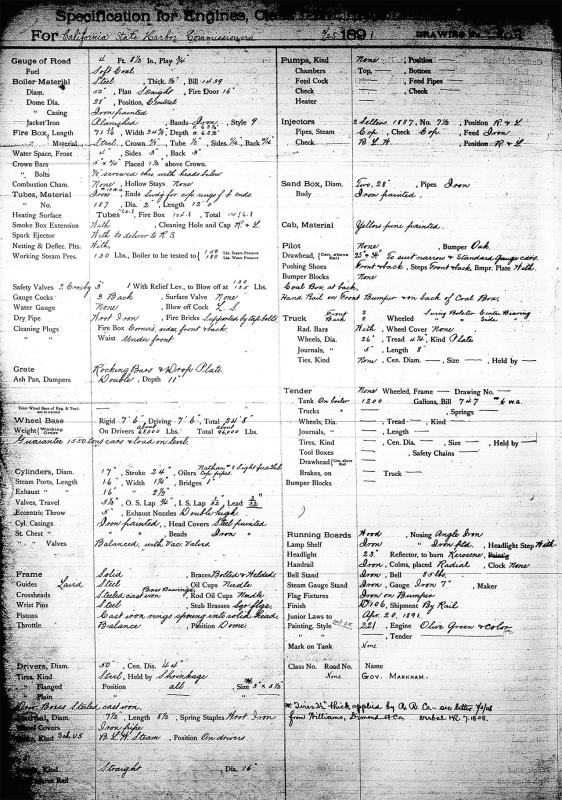 Specification for Engines,
For California State Harbor Commissioners 9/25 1891 DRAWING No.
Gauge of Road 4 Ft. 8½ In., Play ¾"
Fuel Soft Coal.
Boiler Material Steel, Thick. ½", Bill 1459
Diam. 52", Plan Straight, Fire Door 16"
Dome Dia. 28", Position Central
" Casing Iron painted
Jacket Iron Planished, Bands Iron, Style 9
Fire Box, Length
" Material Steel, Crown ⅜" Tube ½", Sides
Water Space, Front 4", Sides 3", Back 3"
Crown Bars Placed 1½" above Crown.
" Bolts ⅞" screwed thro with heads below
Combustion Cham. None, Hollow Stays None
Tubes, Material Iron Ends Swdg for cop. rings f.b. ends.
" No. 187 Dia. 2", Length 12'0"
Heating Surface Tubes Fire Box Total
Smoke Box Extension With, Cleaning Hole and Cap R. & L.
Spark Ejector With to deliver to R. S.
Netting & Deflec. Plts. With.
Working Steam Pres. 130 Lbs., Boiler to be tested to Lbs. Steam Pressure Lbs. Water Pressure
Safety Valves 2 Crosby 3" 1 With Relief Lev., to Blow off at Lbs.
Gauge Cocks 3 Back, Surface Valve None
Water Gauge None, Blow off Cock L. S.
Dry Pipe Wrot Iron, Fire Bricks Supported by stop bolts.
Cleaning Plugs Fire Box Corners, sides, front & back.
Waist Under front
Grate Rocking Bars & Drop Plate
Ash Pan, Dampers Double, Depth 11"
Total Wheel Base of Eng. & Tend. not to exceed
Wheel Base Rigid 7' 6", Driving 7' 6", Total 24' 8"
Weight (Working Order) On Drivers about 68,000 Lbs. Total about 96,000 Lbs.
Guarantee 1550 tons cars & load on level.
Cylinders, Diam. 17", Stroke 24", Oilers Nathan's Sight feed Lub.
Steam Ports, Length 16", Width 1¼", Bridges 1"
Exhaust " 16" " 2½"
Valves, Travel 5½", O. S. Lap ¾", I. S. Lap 1/32", Lead 3/32"
Eccentric Throw 5", Exhaust Nozzles Double high
Cyl. Casings Iron painted, Head Covers Steel painted
St. Chest " " " " Beads Iron "
" " Valves Balanced, with Vac. Valves
Frame Solid, Braces Bolted & Welded.
Guides Laird Steel, Oil Cups Needle
Crossheads Steeled cast iron Brass Bearings, Rod Oil Cups Needle
Wrist Pins Steel, Stub Brasses
Pistons Cast iron rings sprung into solid head
Throttle Balance, Position Dome.
Drivers, Diam. 50", Cen. Dia. 44"
Tires, Kind Steel, Held by Shrinkage
" Flanged Position all * Size 3" x 5½"
" Plain " "
Driv. Boxes Steeled cast iron.
Journal, Diam. 7½", Length 8½, Spring Staples Wrot Iron
Covers Iron pipe
Kind Sch U.S B. L. W. Steam, Position On drivers
Kind Straight Dia. 16"
Pumps, Kind None, Position
Chambers Top, Bottom
Feed Cock Feed Pipes
Check Check
Heater
Injectors 2 Sellers. 1887, No. 7½, Position R. & L.
Pipes, Steam Cop., Check Cop., Feed Iron
Check B. L. W., Position R. & L.
Sand Box, Diam. Two, 28", Pipes Iron
Body Iron painted.
Cab, Material Yellow pine painted.
Pilot None, Bumper Oak.
Drawhead, (Cen. above Rail) 25" & 34" To suit narrow & Standard Gauge cars.
Pushing Shoes Front & back, Steps Front & back, Bmpr. Plate With.
Bumper Blocks None
Coal Box at back.
Hand Rail on Front Bumper & on back of Coal Box.
Truck Front 2 Swing Bolster Center Bearing
Back 2 Wheeled " " Side "
Rad. Bars With, Wheel Cover None
Wheels, Dia. 26", Tread 4¾, Kind Plate
Journals, " 5", Length 8"
Ties, Kind None, Cen. Diam. Size Held by
Tender None Wheeled, Frame Drawing No.
Tank On boiler 1200 Gallons, Bill 747 #6 W.G.
Trucks " , Springs
Wheels, Dia. Tread Kind
Journals, " , Length
Tires, Kind Cen. Dia. Size Held by
Tool Boxes , Safety Chains
Drawhead (Cen. above Rail)
Brakes, on Truck
Bumper Blocks
Running Boards Wood, Nosing Angle Iron
Lamp Shelf Iron, " Iron fld., Headlight Step With
Headlight 23", Reflector, to burn Kerosene,
Handrail Iron, Colms, placed Radial, Clock None
Bell Stand Iron, Bell 55 lbs.
Steam Gauge Stand Iron, Gauge Iron 7", Maker
Flag Fixtures Iron on Bumper
Finish D 106, Shipment By Rail
Junior Laws to Apr. 20, 1891.
Painting, Style 221, Engine Olive Green & Color
" " , Tender
Mark on Tank None
Class No. Road No. Name
None GOV. MARKHAM.
* Tires 3½" thick applied by A. R. Co — see letter
from Williams, Dimond & Co. verbal